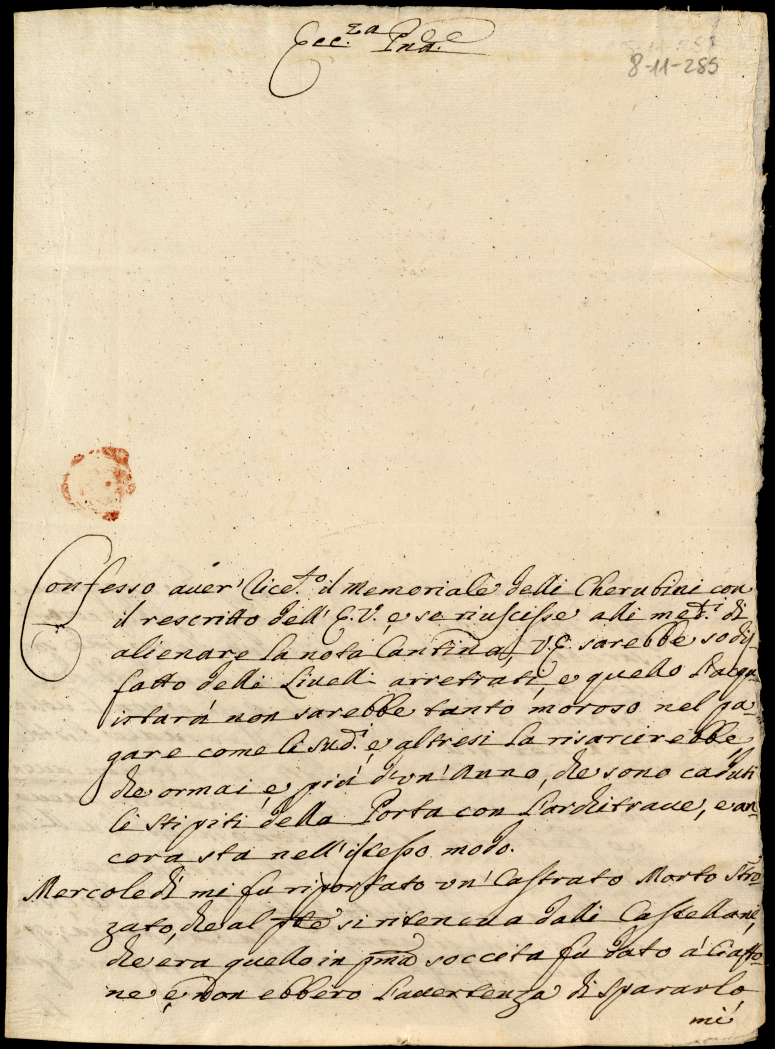 Ecc.za Pnd.e
8-11-285
Confesso auer' rice.to il Memoriale delli Cherubini con
il rescritto dell' E.V. e se riuscisse alli med.i di
alienare la nota Cantina, V.E. sarebbe sodis-
fatto delli Liuelli arretrati, e quello l'acqui-
istarà non sarebbe tanto moroso nel pa-
gare come li sud.i e altresi la risarcirebbe
che ormai, è più d'un' Anno, che sono caduti
li stipiti della Porta con l'architraue, e an-
cora sta nell'istesso modo.
Mercoledì mi fu riportato un' Castrato Morto Stro-
zato, che al pnte si riteneua dalli Castellani,
che era quello in pma soccita fu dato a' Ciaffo-
ne e non ebbero l'auertenza di spararlo,
mi